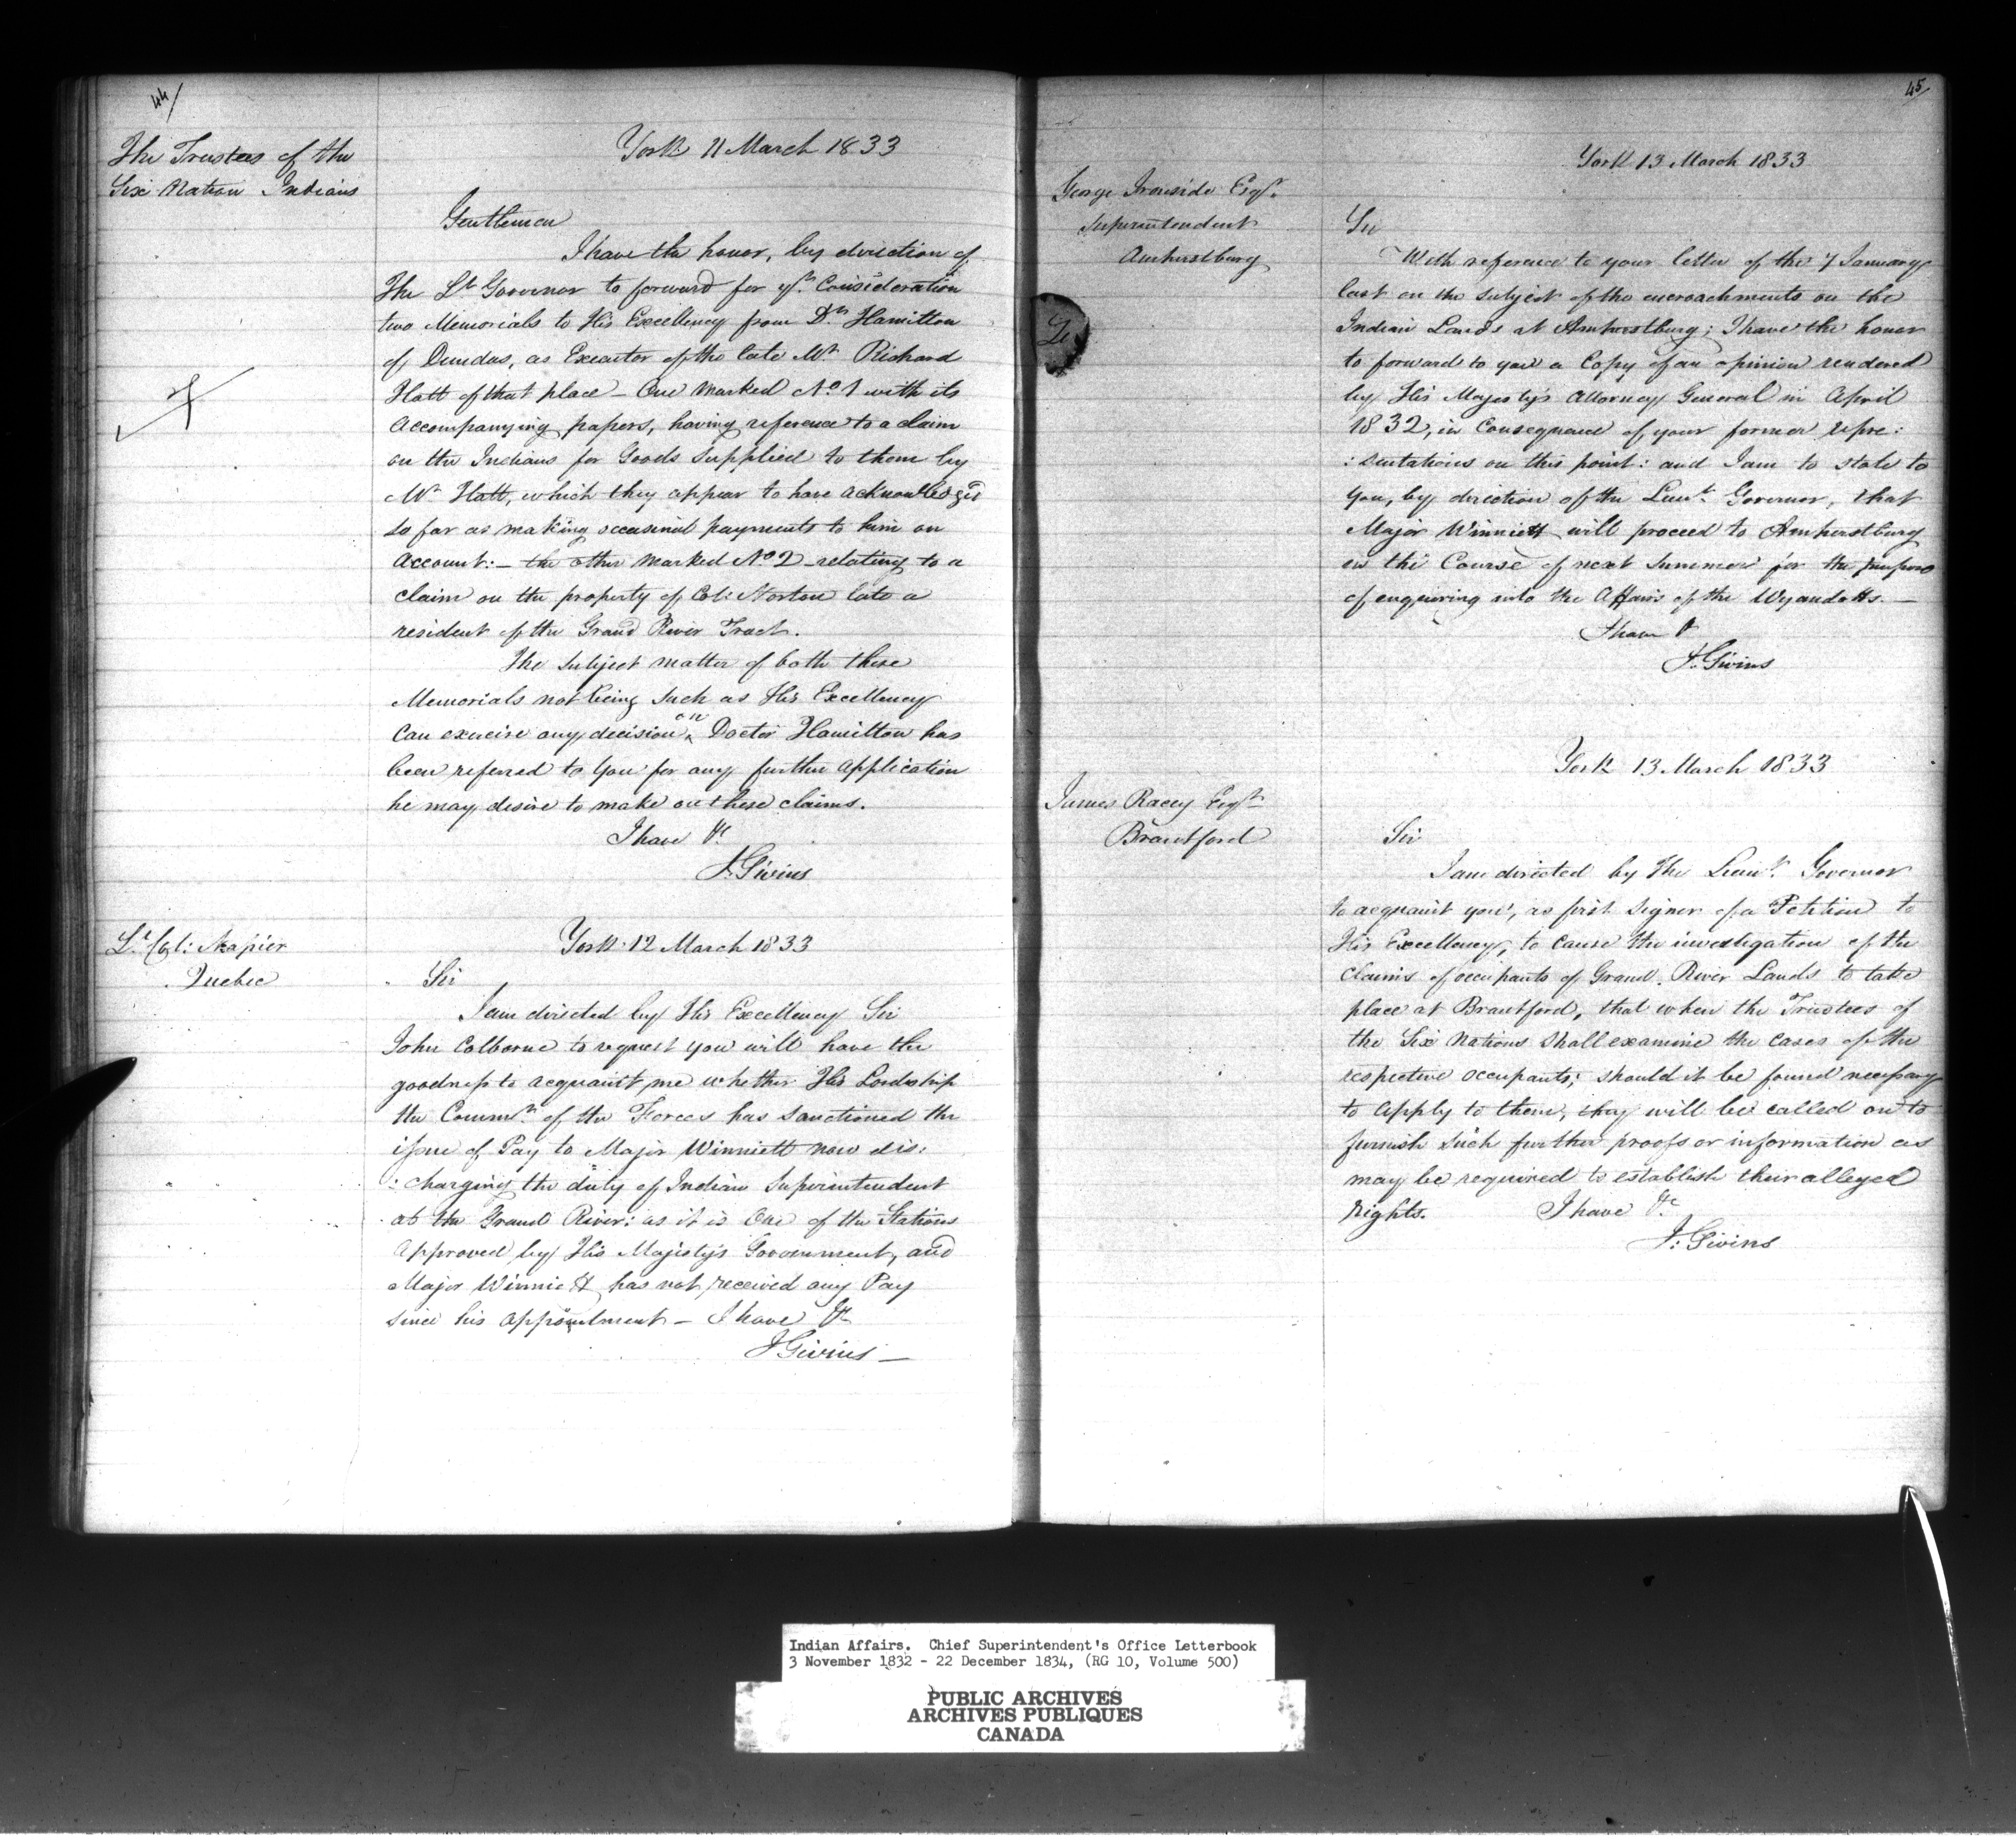 44/
The Trustees of the
Six Nation Indians
York 11 March 1833
Gentlemen
I have the honor, by direction of
The Lt Governor to forward for yr. Consideration
two Memorials to His Excellency from Dr. Hamilton
of Dundas, as Executor of the late Mr. Richard
Hatt of that place – One marked No. 1 with its
Accompanying papers, having reference to a claim
on the Indians for Goods supplied to them by
Mr. Hatt, which they appear to have acknowledged
so far as making occasinal payments to him on
Account: – the other marked No. 2 – relating to a
claim on the property of Col: Norton late a
resident of the Grand River Tract.
The subject matter of both these
Memorials not being such as His Excellency
Can exercise any decision on, Doctor Hamilton has
been referred to You for any further Application
he may desire to make on these claims.
I have &c
J. Givins
Lt. Col: Napier
Quebec
York 12 March 1833
Sir
I am directed by His Excellency Sir
John Colborne to request you will have the
goodness to acquaint me whether His Lordship
the Commr. of the Forces has sanctioned the
issue of Pay to Major Winniett now dis:
:charging the duty of Indian Superintendent
at the Grand River: as it is One of the Stations
Approved by His Majesty's Government, and
Major Winniett has not received any Pay
since his appointment – I have &c
J Givins –
45/
York 13 March 1833
George Ironside Esqr.
Superintendent
Amherstburg
Sir
With reference to your letter of the 7 January
last on the subject of the encroachments on the
Indian Lands at Amherstburg; I have the honor
to forward to you a Copy of an opinion rendered
by His Majesty's Attorney General in April
1832, in Consequence of your former repre:
:sentations on this point: and I am to state to
You, by direction of the Lieut. Governor, that
Major Winniett will proceed to Amherstburg
in the Course of next Summer for the purpose
of enquiring into the Affairs of the Wyandotts. –
I have &
J. Givins
York 13 March 1833
James Racey Esqr.
Brantford
Sir
I am directed by The Lieut. Governor
to acquaint you, as first signer of a Petition to
His Excellency, to cause the investigation of the
Claims of occupants of Grand River Lands to take
place at Brantford, that when the Trustees of
the Six Nations shall examine the cases of the
respective occupants; should it be found necessary
to Apply to them, they will be called on to
furnish such further proofs or information as
may be required to establish their alleged
rights. I have &c
J: Givins
Indian Affairs. Chief Superintendent's Office Letterbook
3 November 1832 - 22 December 1834, (RG 10, Volume 500)
PUBLIC ARCHIVES
ARCHIVES PUBLIQUES
CANADA